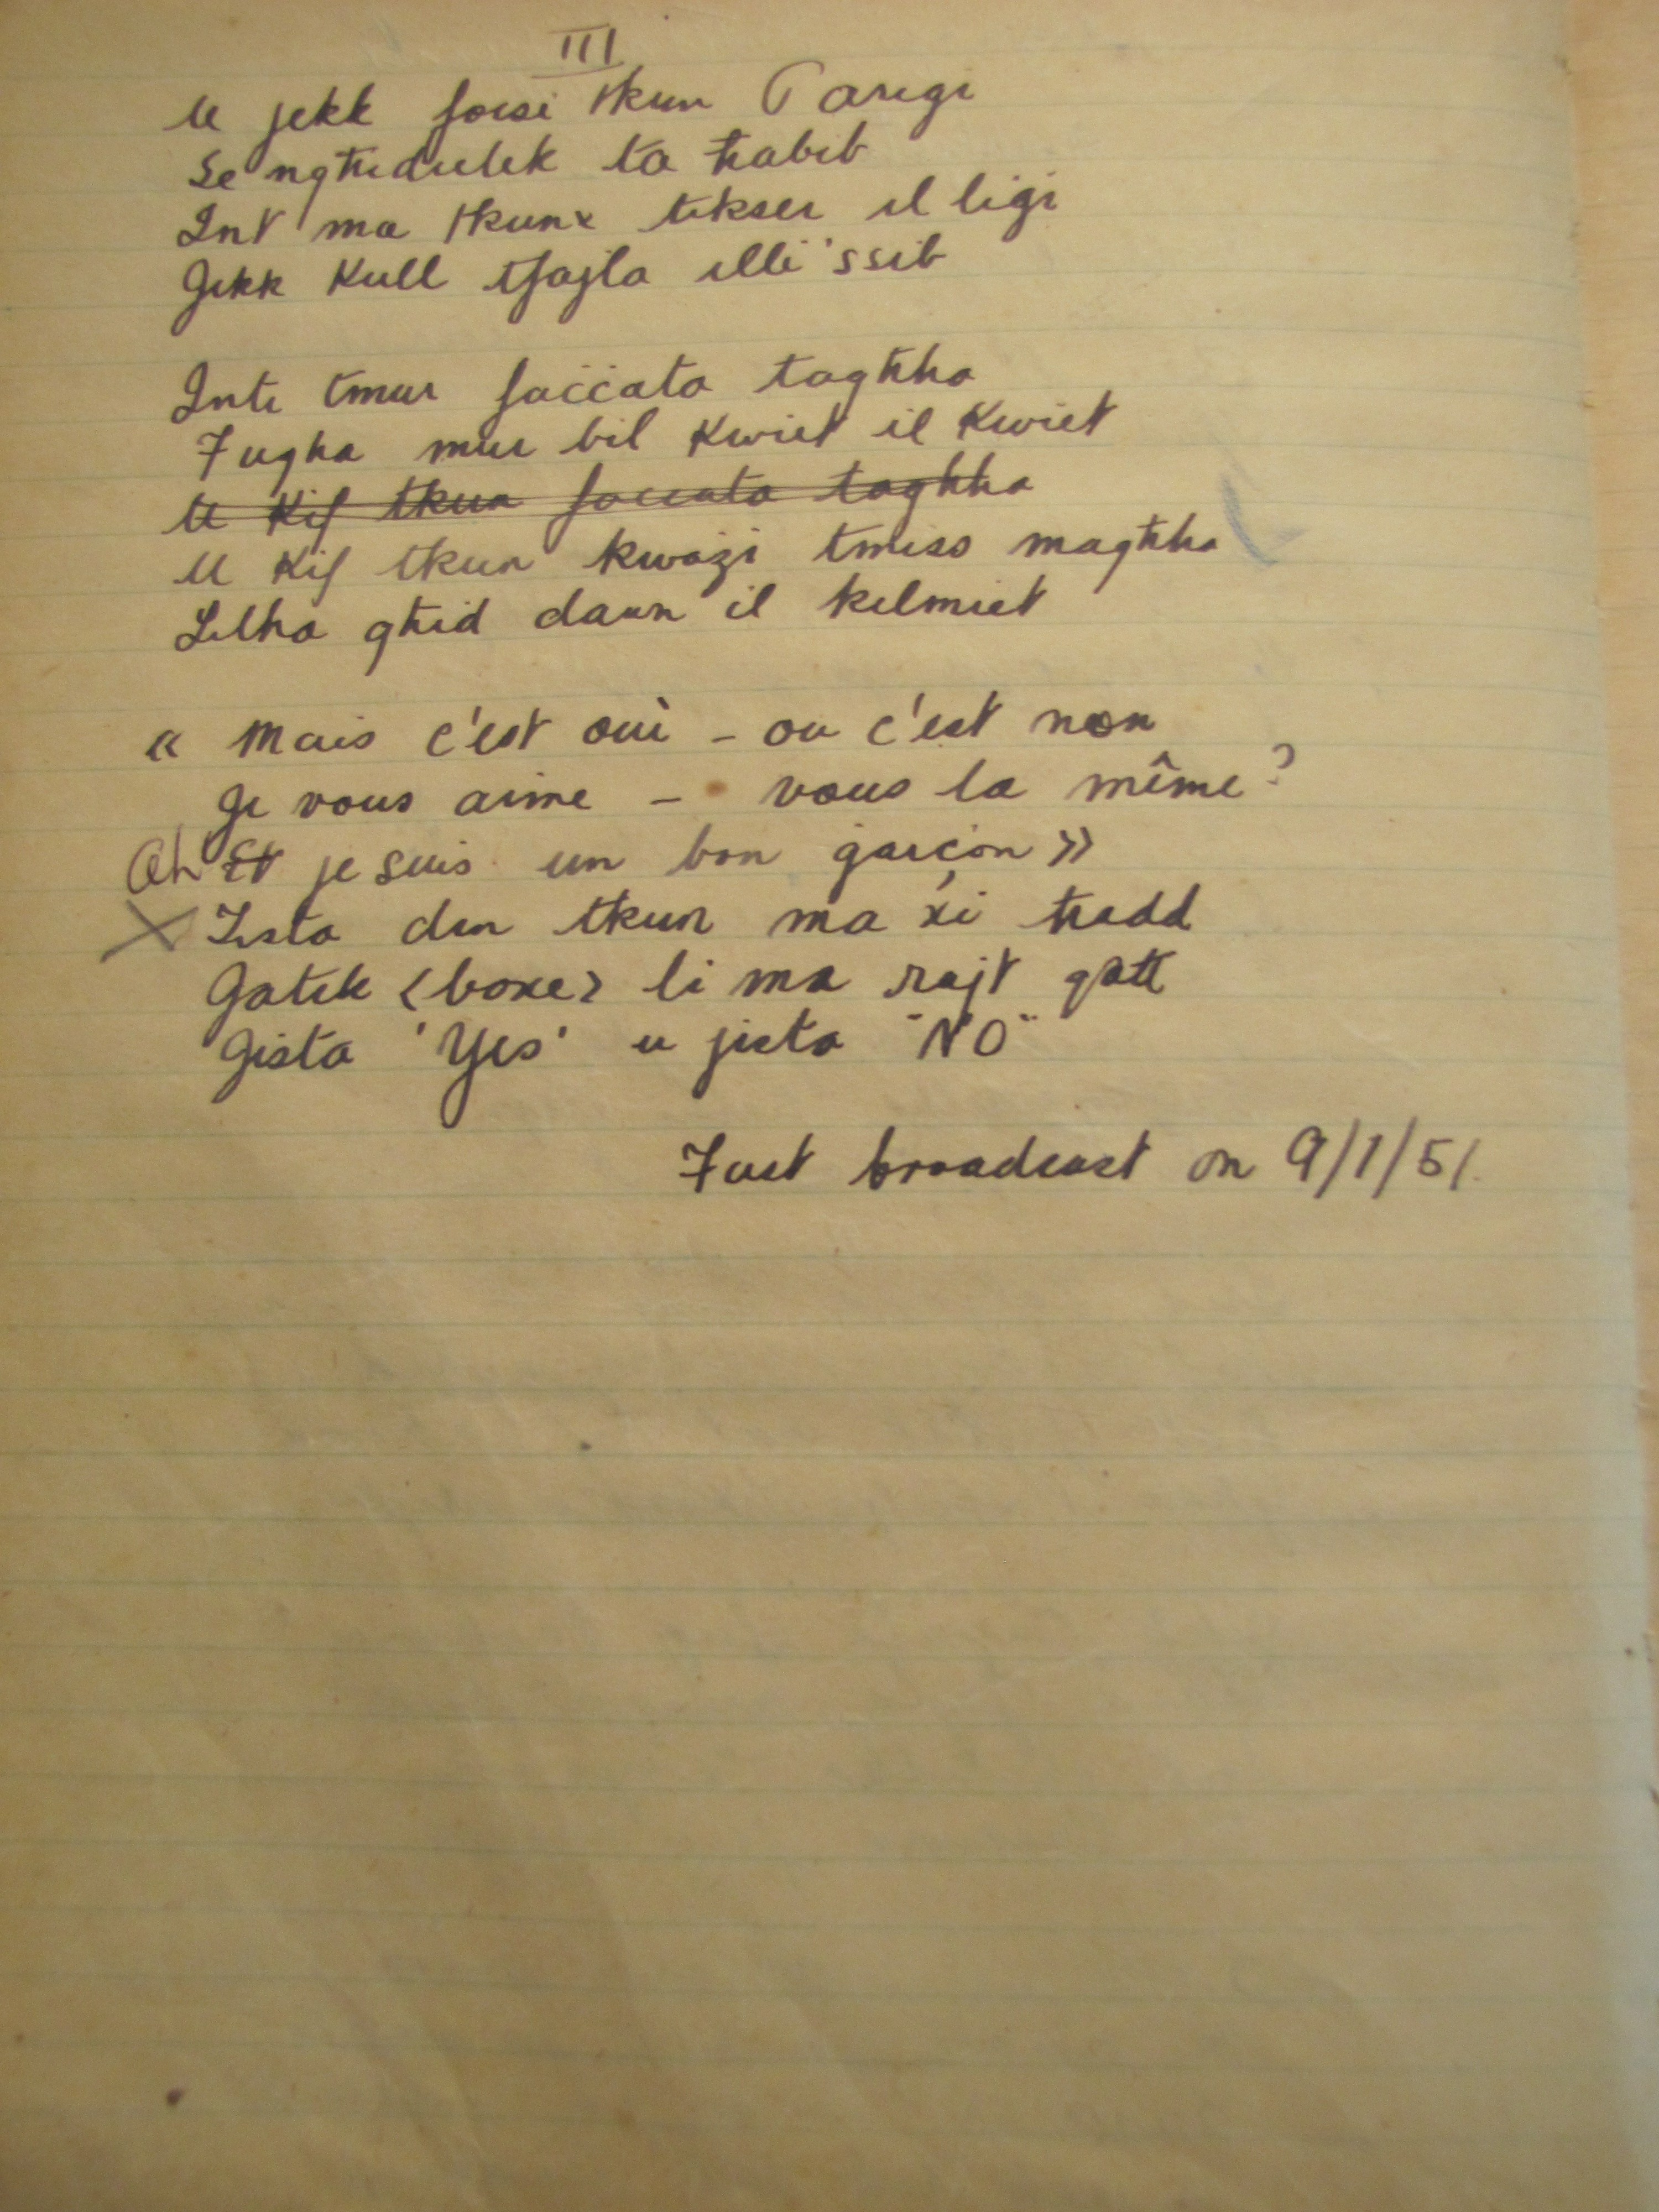 III
U jekk forsi tkun Parigi
Se ngħidulek ta ħabib
Int ma tkunx tikser il ligi
Jekk kull tfajla illi 'ssib
Inti tmur faċċata tagħha
Fugha mur bil kwiet il kwiet
U kif tkun faccata tagħha
U kif tkun kwazi tmiss magħha
Lilha għid dawn il kelmiet
« Mais c'est oui - ou c'est non
Je vous aime - vous la même?
Oh Et je suis un bon garçon »
X Zista din tkun ma xi ħadd
Jatik <boxe> li ma rajt qatt
Jista 'Yes' u jista "NO"
First broadcast on 9/1/51.